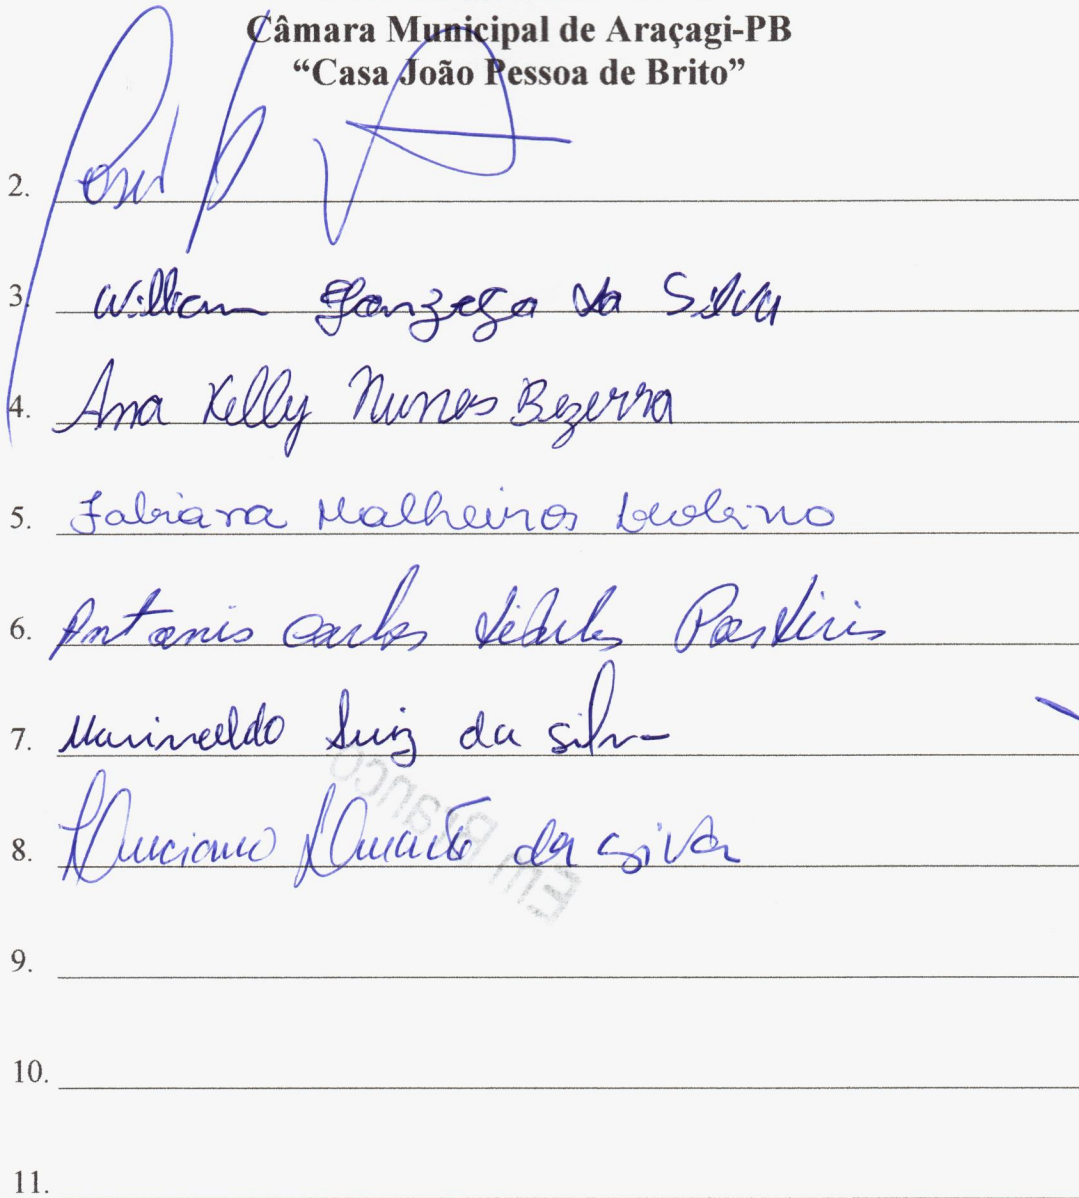 Câmara Municipal de Araçagi-PB
“Casa João Pessoa de Brito”
2.
3. William Gonzaga da Silva
4. Ana Kelly Nunes Bezerra
5. Fabiana Malheiros
6. Antonio Carlos
7. Marinaldo Luiz da Silva
8. Luciano Duarte da Silva
Em Branco
9.
10.
11.